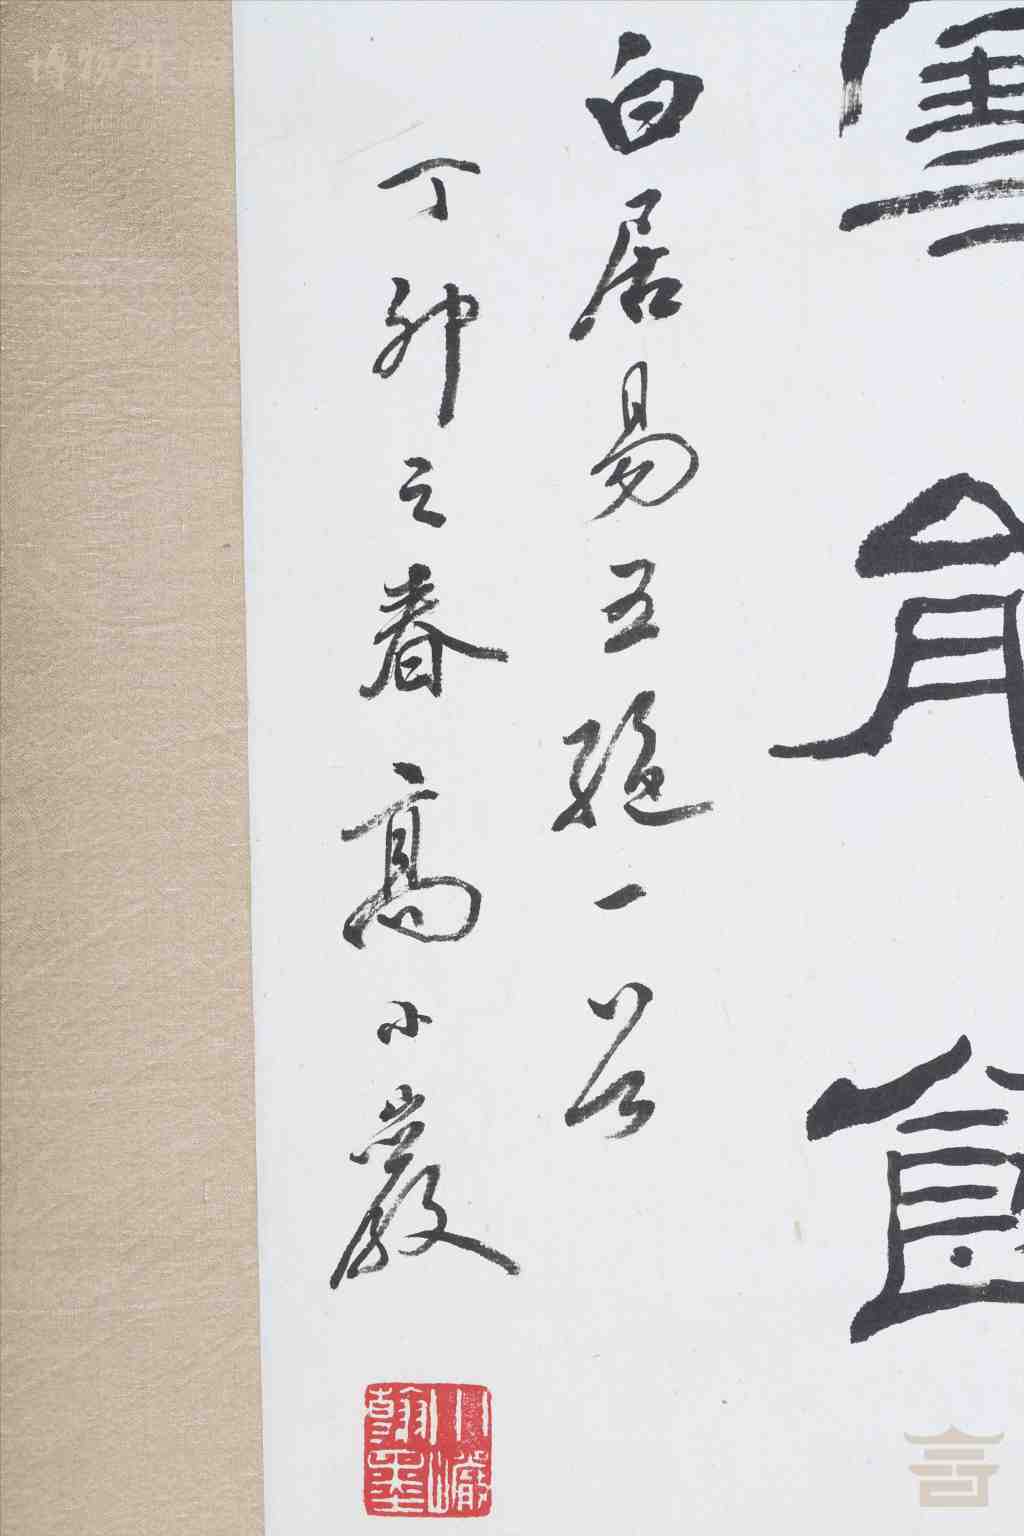 雪能飲
白居易五絕一首
丁卯之春高小巖
小巖翰墨